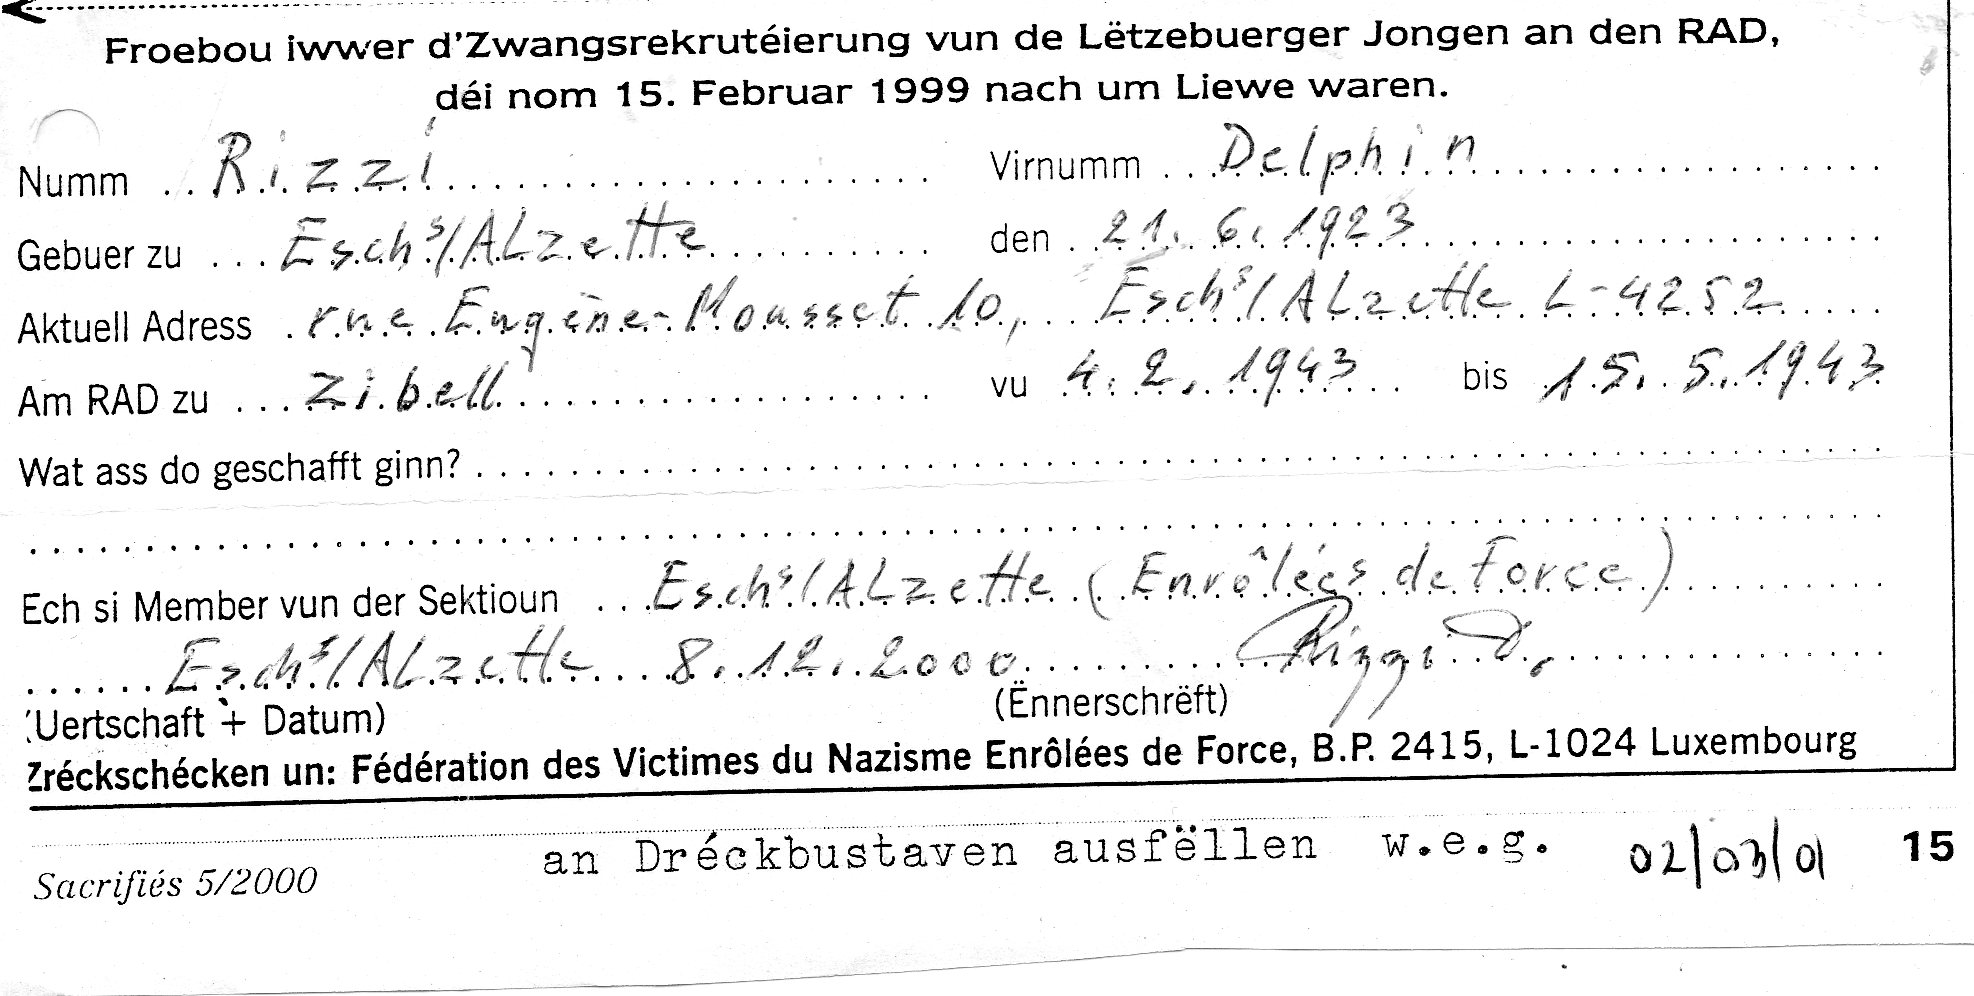 Froebou iwwer d'Zwangsrekrutéierung vun de Lëtzebuerger Jongen an den RAD,
déi nom 15. Februar 1999 nach um Liewe waren.
Numm Rizzi Virnumm Delphin
Gebuer zu Esch s/ALzette den 21. 6. 1923
Aktuell Adress rue Eugène-Mousset 10, Esch s/ALzette L-4252
Am RAD zu Zibell vu 4. 2. 1943 bis 15. 5. 1943
Wat ass do geschafft ginn?
Ech si Member vun der Sektioun Esch s/ALzette (Enrôlées de Force)
Esch s/ALzette 8. 12. 2000 Rizzi D.
(Uertschaft + Datum) (Ënnerschrëft)
Zréckschécken un: Fédération des Victimes du Nazisme Enrôlées de Force, B.P. 2415, L-1024 Luxembourg
an Dréckbustaven ausfëllen w.e.g. 02/03/01 15
Sacrifiés 5/2000